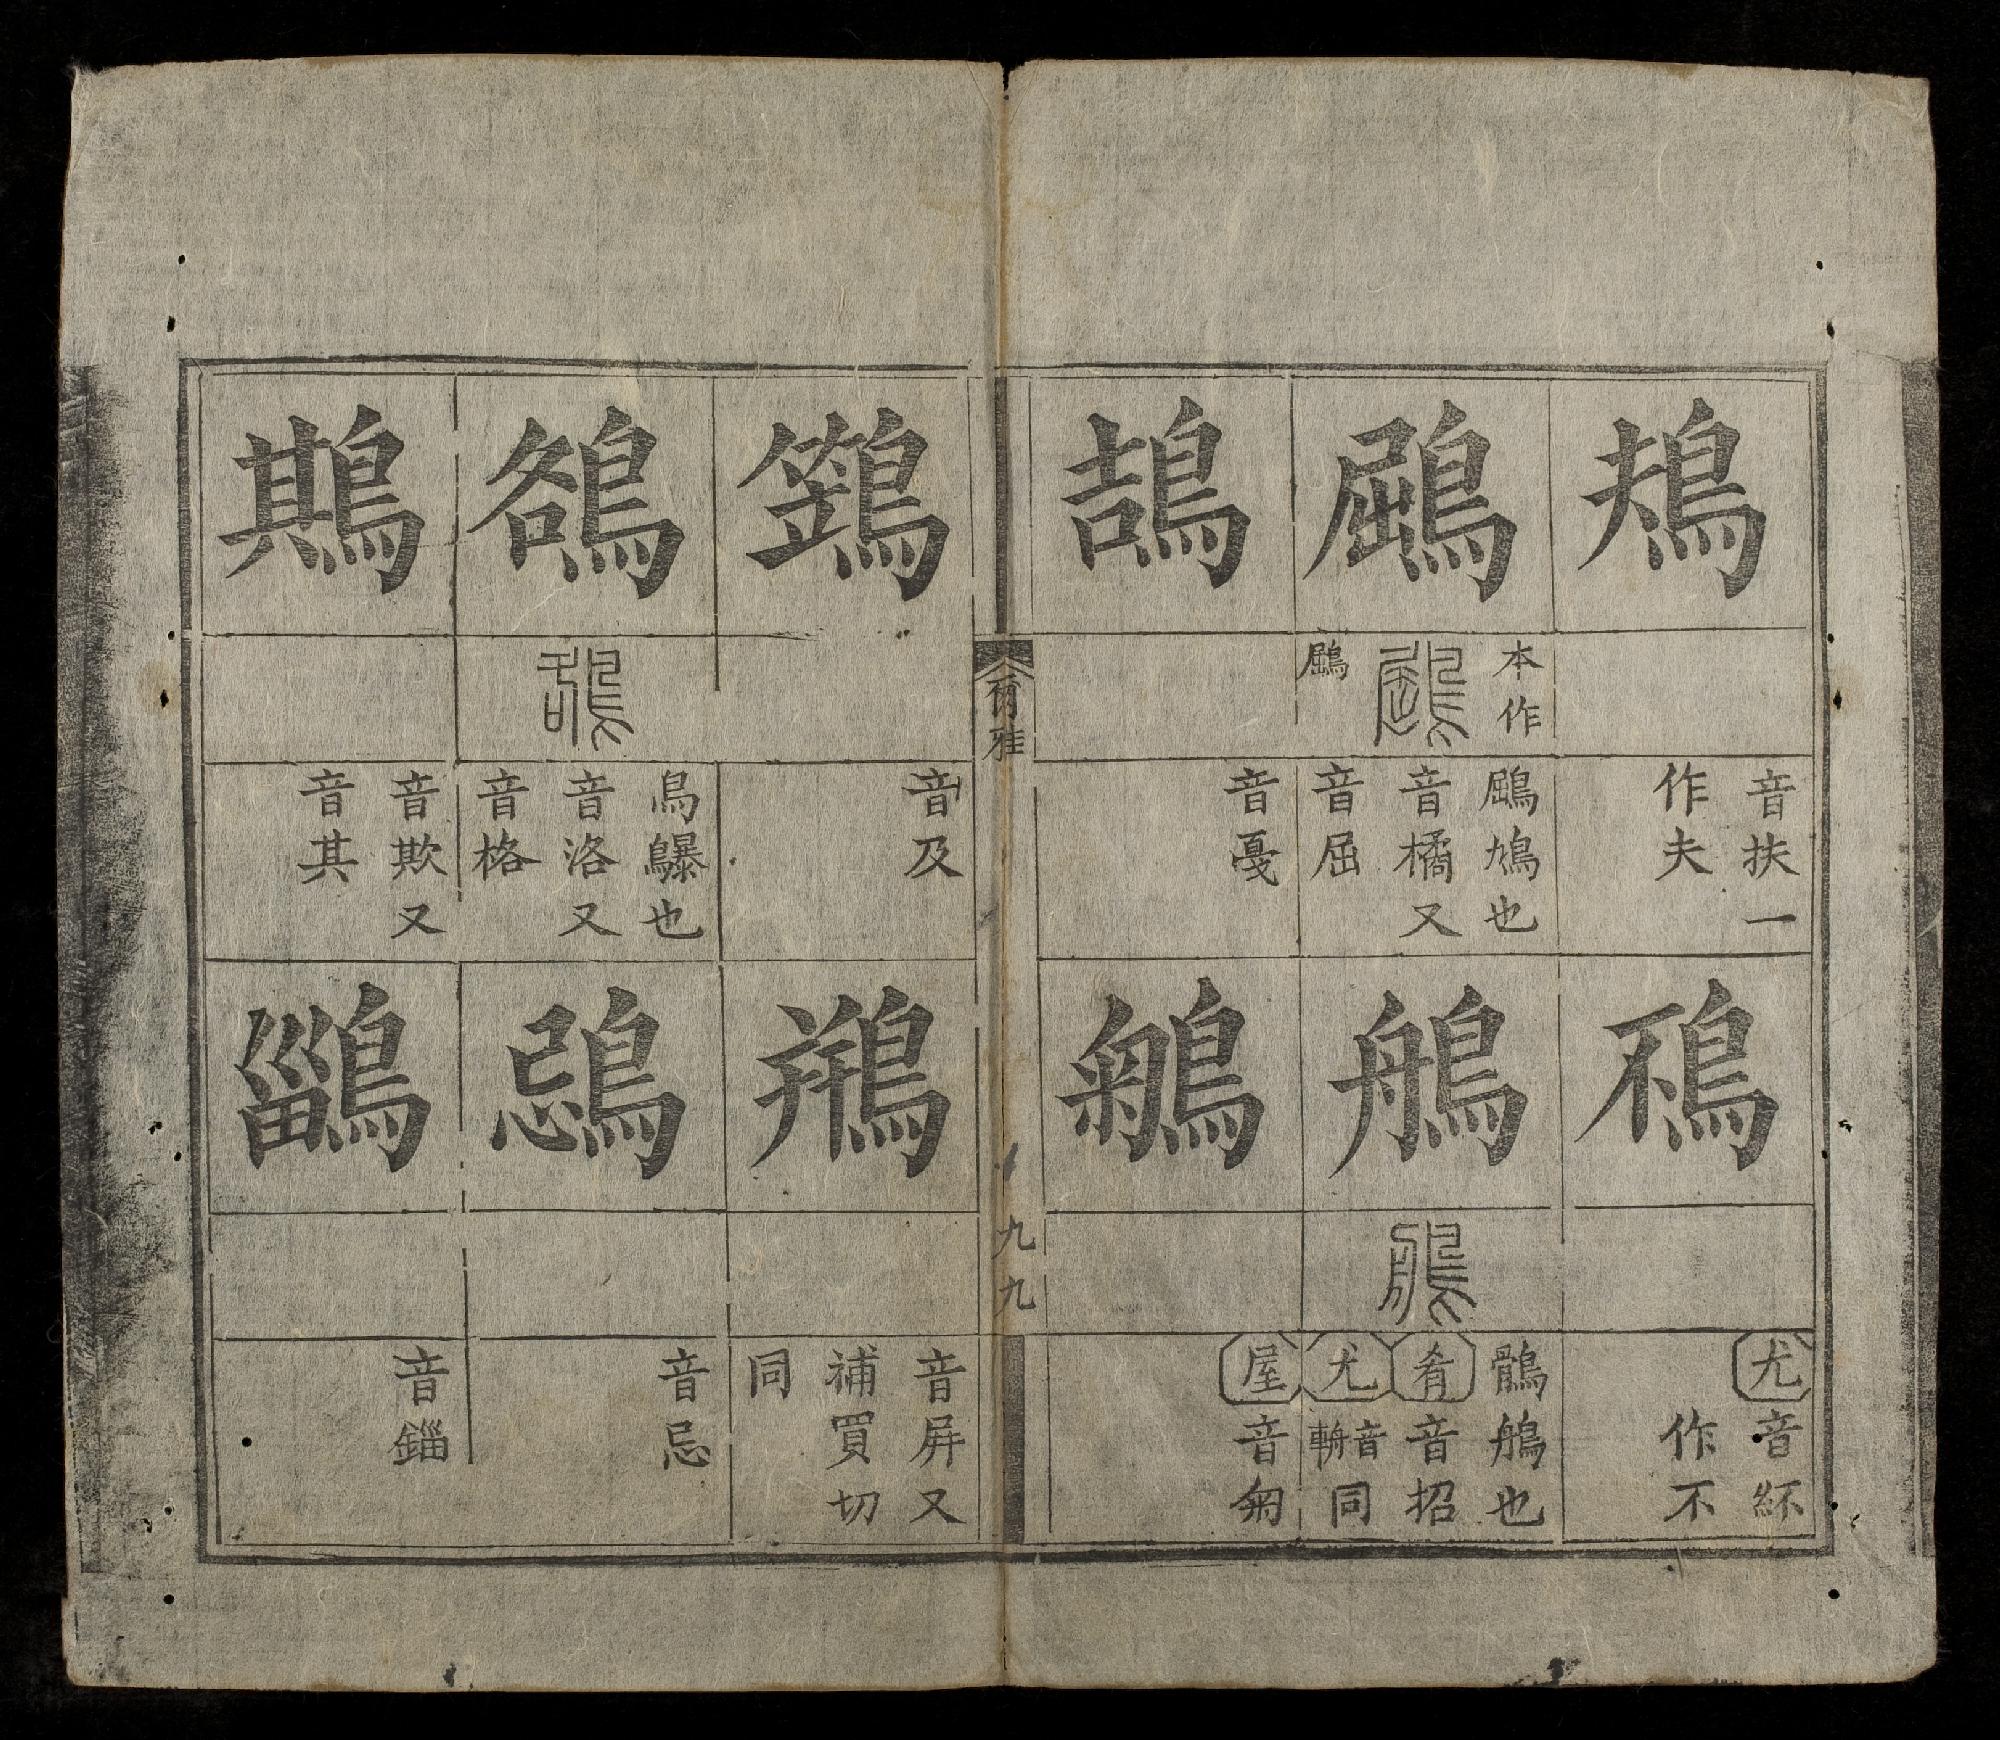 鳺
音扶一
作夫
鴀
尤音紑
作不
鶌
本作
鶌
鶌鳩也
音橘又
音屈
鵃
鶻鵃也
肴音招
尤音輈同
鴶
音戛
鵴
屋音匊
爾雅
九九
鷑
音及
鵧
音屏又
補買切
同
鵅
烏鸔也
音洛又
音格
鵋
音忌
鶀
音欺又
音其
鶅
音錙